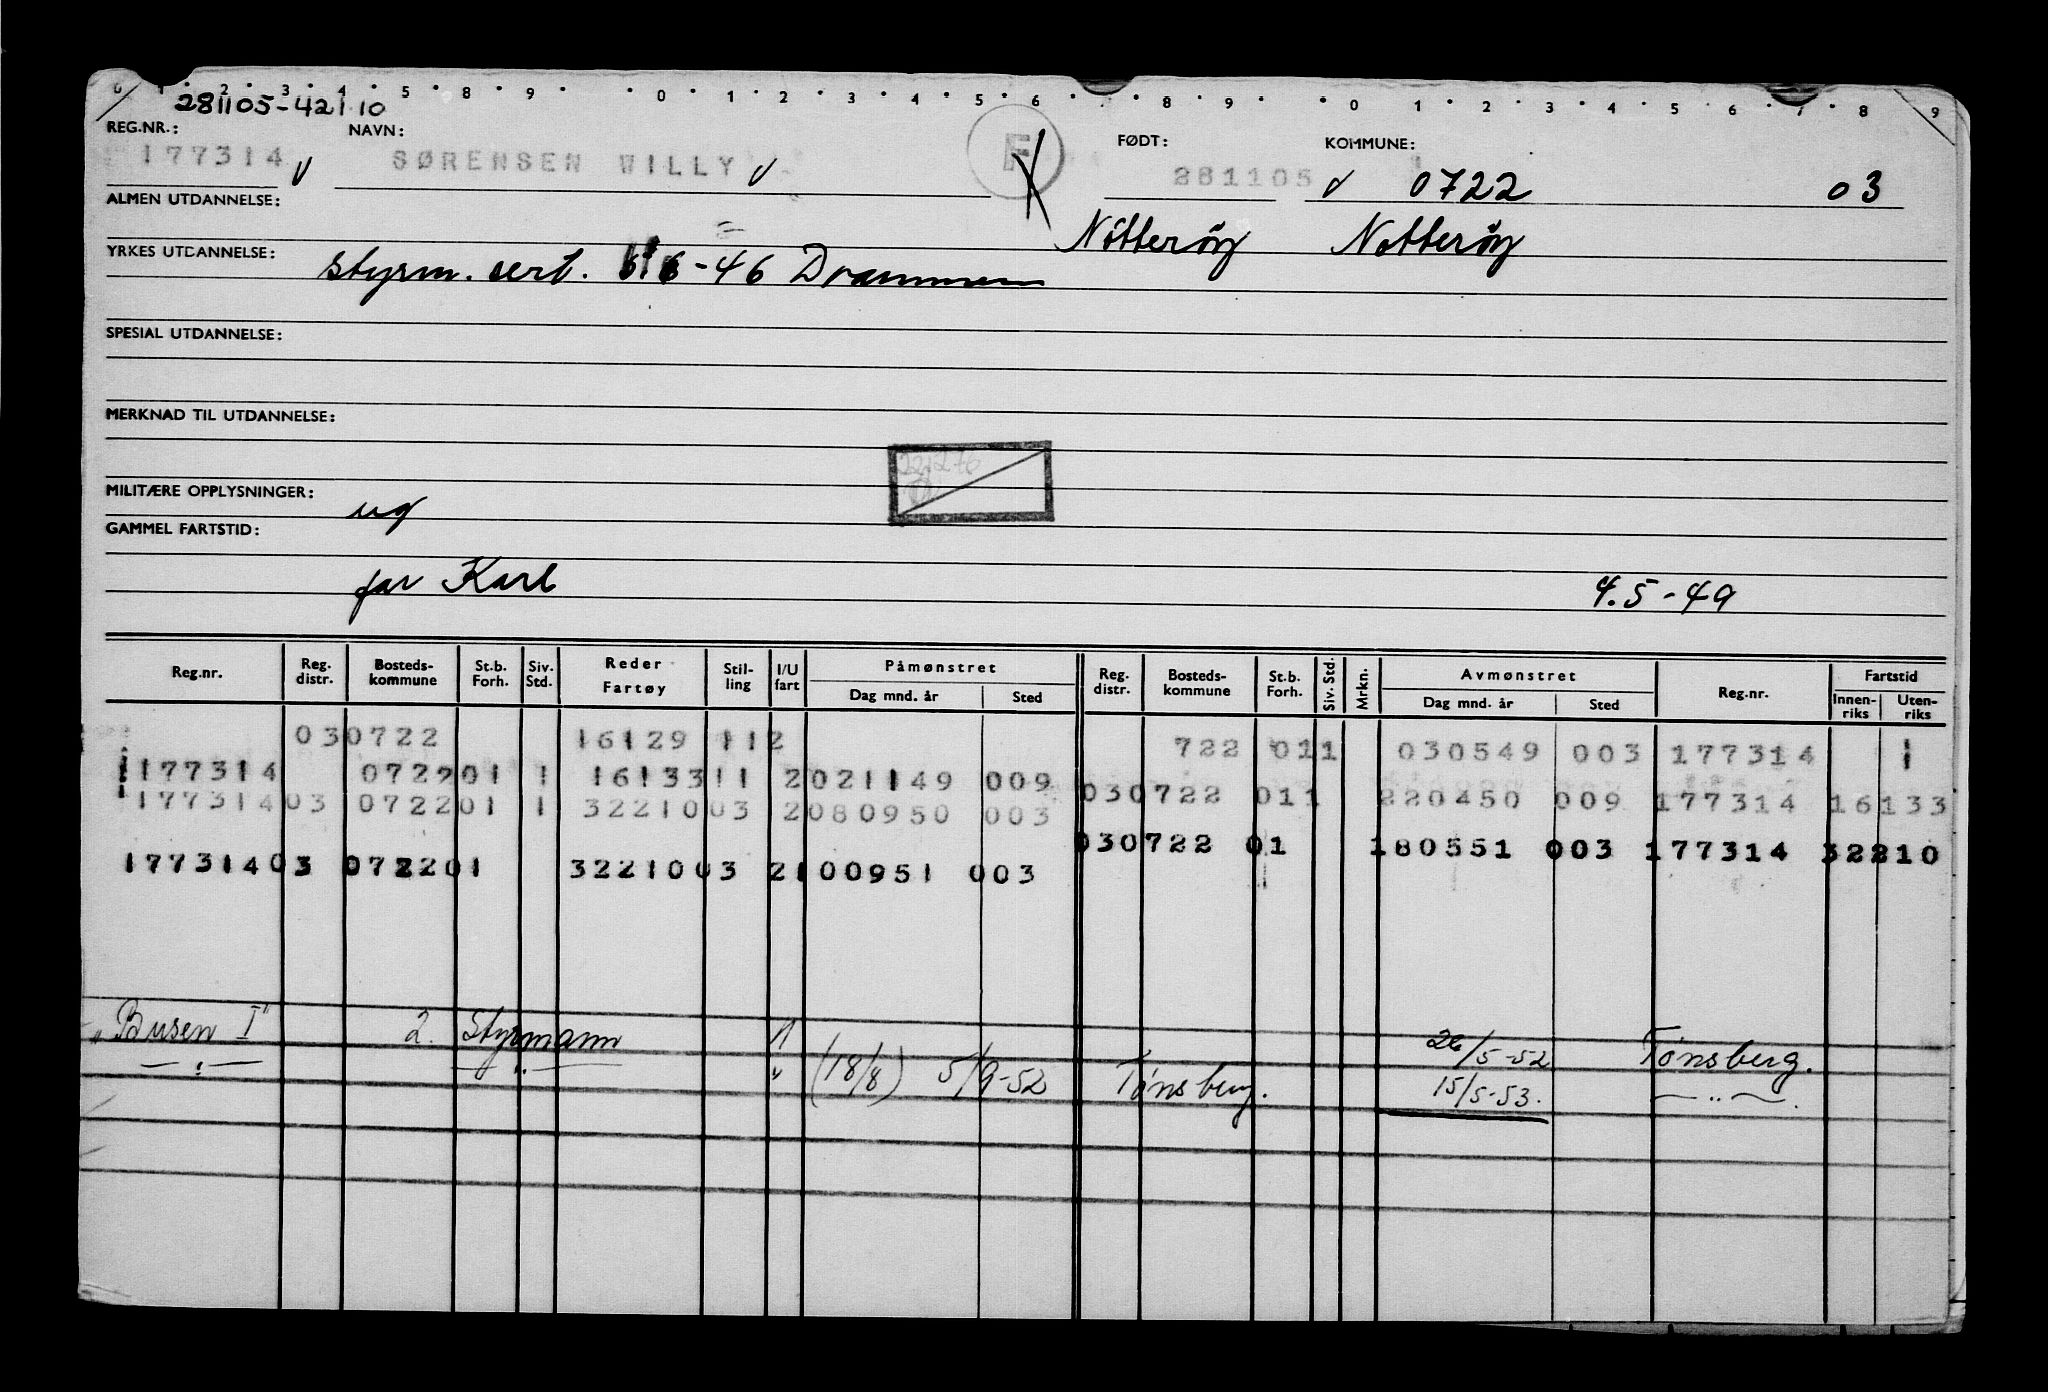 0 1 2 3 4 5 8 9 0 1 2 3 4 5 6 7 8 9 0 1 2 3 4 5 6 7 8 9
281105-42110
REG.NR.: NAVN: FØDT: KOMMUNE:
177314 SØRENSEN WILLY F 281105 0722 03
ALMEN UTDANNELSE:
Nötterøy Nøtterøy
YRKES UTDANNELSE: styrm. sert. 6-46 Drammen
SPESIAL UTDANNELSE:
MERKNAD TIL UTDANNELSE:
MILITÆRE OPPLYSNINGER: ug
GAMMEL FARTSTID:
far Karl 4.5-49
Reg.nr. Reg. distr. Bosteds-kommune St.b. Forh. Siv. Std. Reder Fartøy Stil-ling I/U fart Påmønstret Dag mnd. år Sted Reg. distr. Bosteds-kommune St.b. Forh. Siv. Std. Mrkn. Avmønstret Dag mnd. år Sted Reg.nr. Fartstid Innen-riks Uten-riks
030722 16129 112 722 011 030549 003 177314 1
177314 072201 1 16133 11 2021149 009 030722 011 220450 009 177314 16133
177314 03 072201 1 3221003 2080950 003 030722 01 180551 003 177314 32210
17731403 072201 3221003 2100951 003
"Busen I" 2. Styrmann 26/5-52 Tønsberg.
— " — — " — " (18/8) 5/9-52 Tønsberg. 15/5-53. — " —.